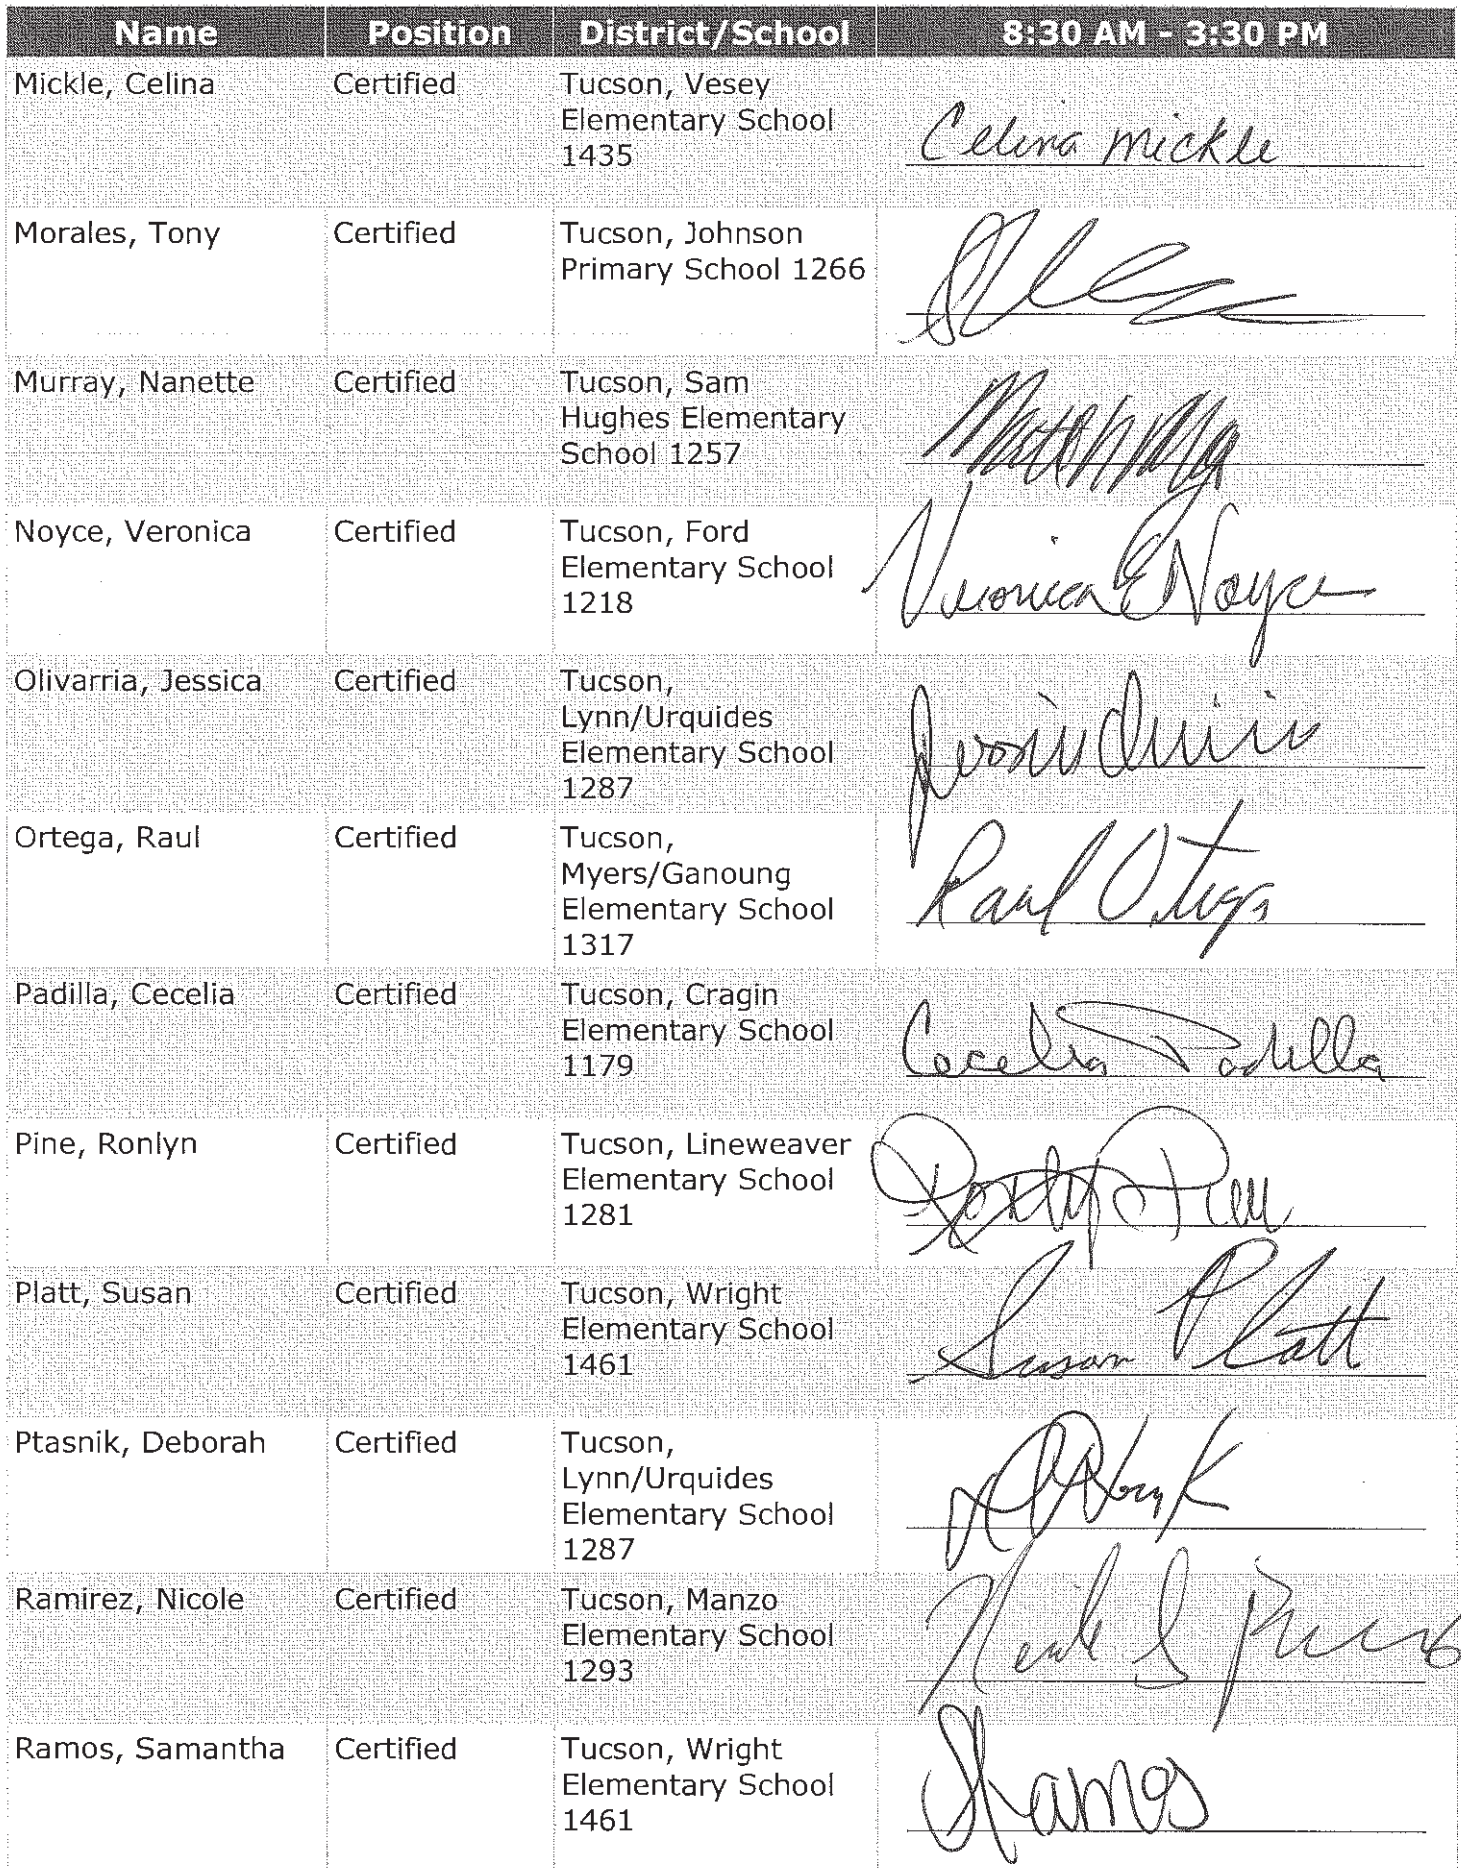 Name Position District/School 8:30 AM - 3:30 PM
Mickle, Celina Certified Tucson, Vesey
Elementary School
1435
Celina Mickle
Morales, Tony Certified Tucson, Johnson
Primary School 1266
Murray, Nanette Certified Tucson, Sam
Hughes Elementary
School 1257
Noyce, Veronica Certified Tucson, Ford
Elementary School
1218
Veronica E Noyce
Olivarria, Jessica Certified Tucson,
Lynn/Urquides
Elementary School
1287
Ortega, Raul Certified Tucson,
Myers/Ganoung
Elementary School
1317
Raul Ortega
Padilla, Cecelia Certified Tucson, Cragin
Elementary School
1179
Cecelia Padilla
Pine, Ronlyn Certified Tucson, Lineweaver
Elementary School
1281
Platt, Susan Certified Tucson, Wright
Elementary School
1461
Susan Platt
Ptasnik, Deborah Certified Tucson,
Lynn/Urquides
Elementary School
1287
Ramirez, Nicole Certified Tucson, Manzo
Elementary School
1293
Ramos, Samantha Certified Tucson, Wright
Elementary School
1461
SRamos